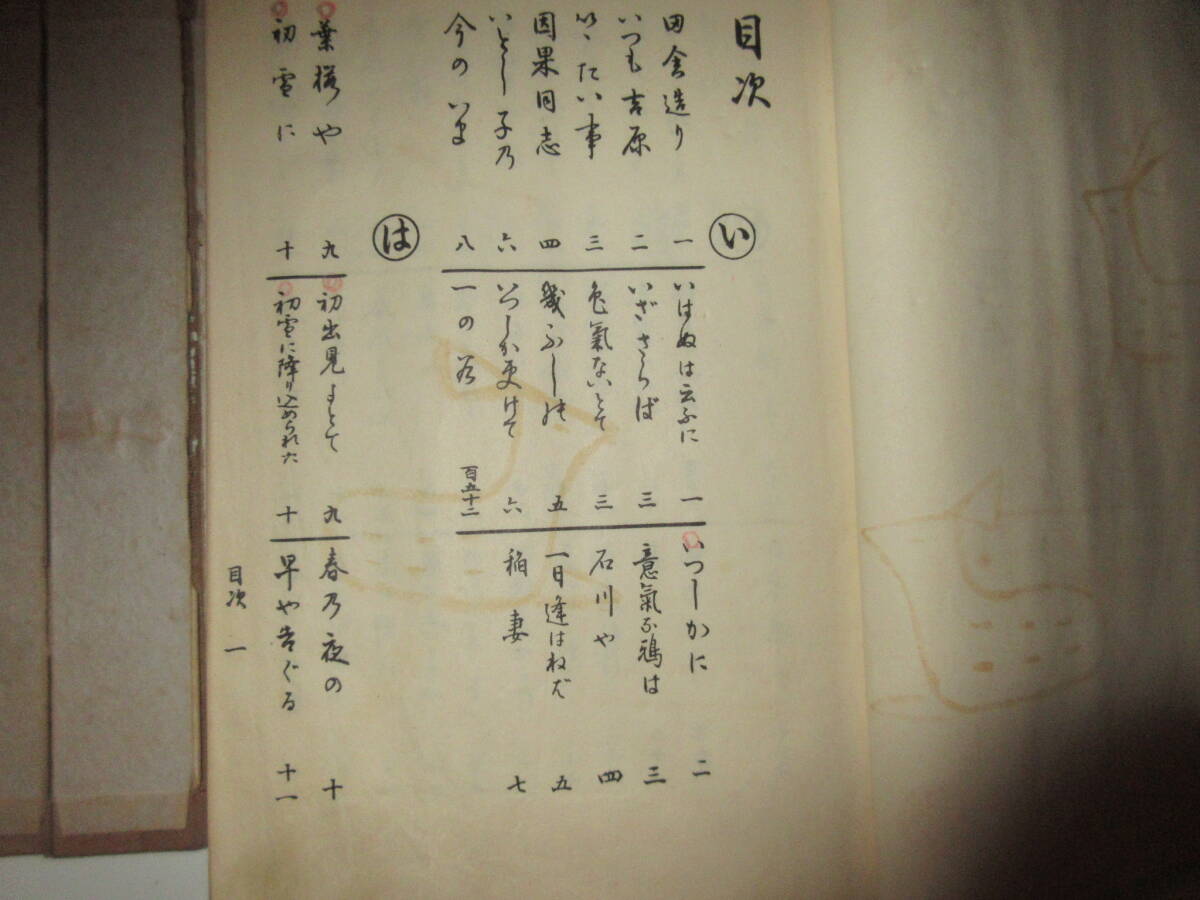 目次
い
田舎造り 一
いはぬは云ふに 一
いつしかに 二
いつも吉原 二
いざさらば 三
意氣な鴉は 三
いゝたい事 三
色氣ないとて 三
石川や 四
因果同志 四
幾ふしの 五
一日逢はねば 五
いとし子乃 六
いつしか更けて 六
稲妻 七
今のいま 八
一の谷 百五十二
は
葉桜や 九
初出見よとて 九
春乃夜の 十
初雪に 十
初雪に降り込められた 十
早や告ぐる 十一
目次 一